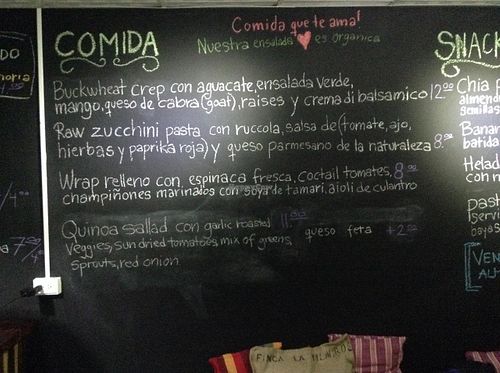 Comida que te ama!
Nuestra ensalada es organica
COMIDA
Buckwheat crep con aguacate, ensalada verde,
mango, queso de cabra (goat), raises y crema di balsamico 12.00
Raw zucchini pasta con ruccola, salsa de (tomate, ajo,
hierbas y paprika roja) y queso parmesano de la naturaleza 8.00
Wrap relleno con espinaca fresca, coctail tomates, 8.00
champiñones marinados con soya de tamari, aioli de culantro
Quinoa sallad con garlic roasted 11.00
veggies, sun dried tomatoes, mix of greens, queso feta +2.00
Sprouts, red onion.
SNACK
Chia
almend
semillas
Banan
batida
Helad
con
past
servi
bayas
VEN
ALT
DO
FINCA LA